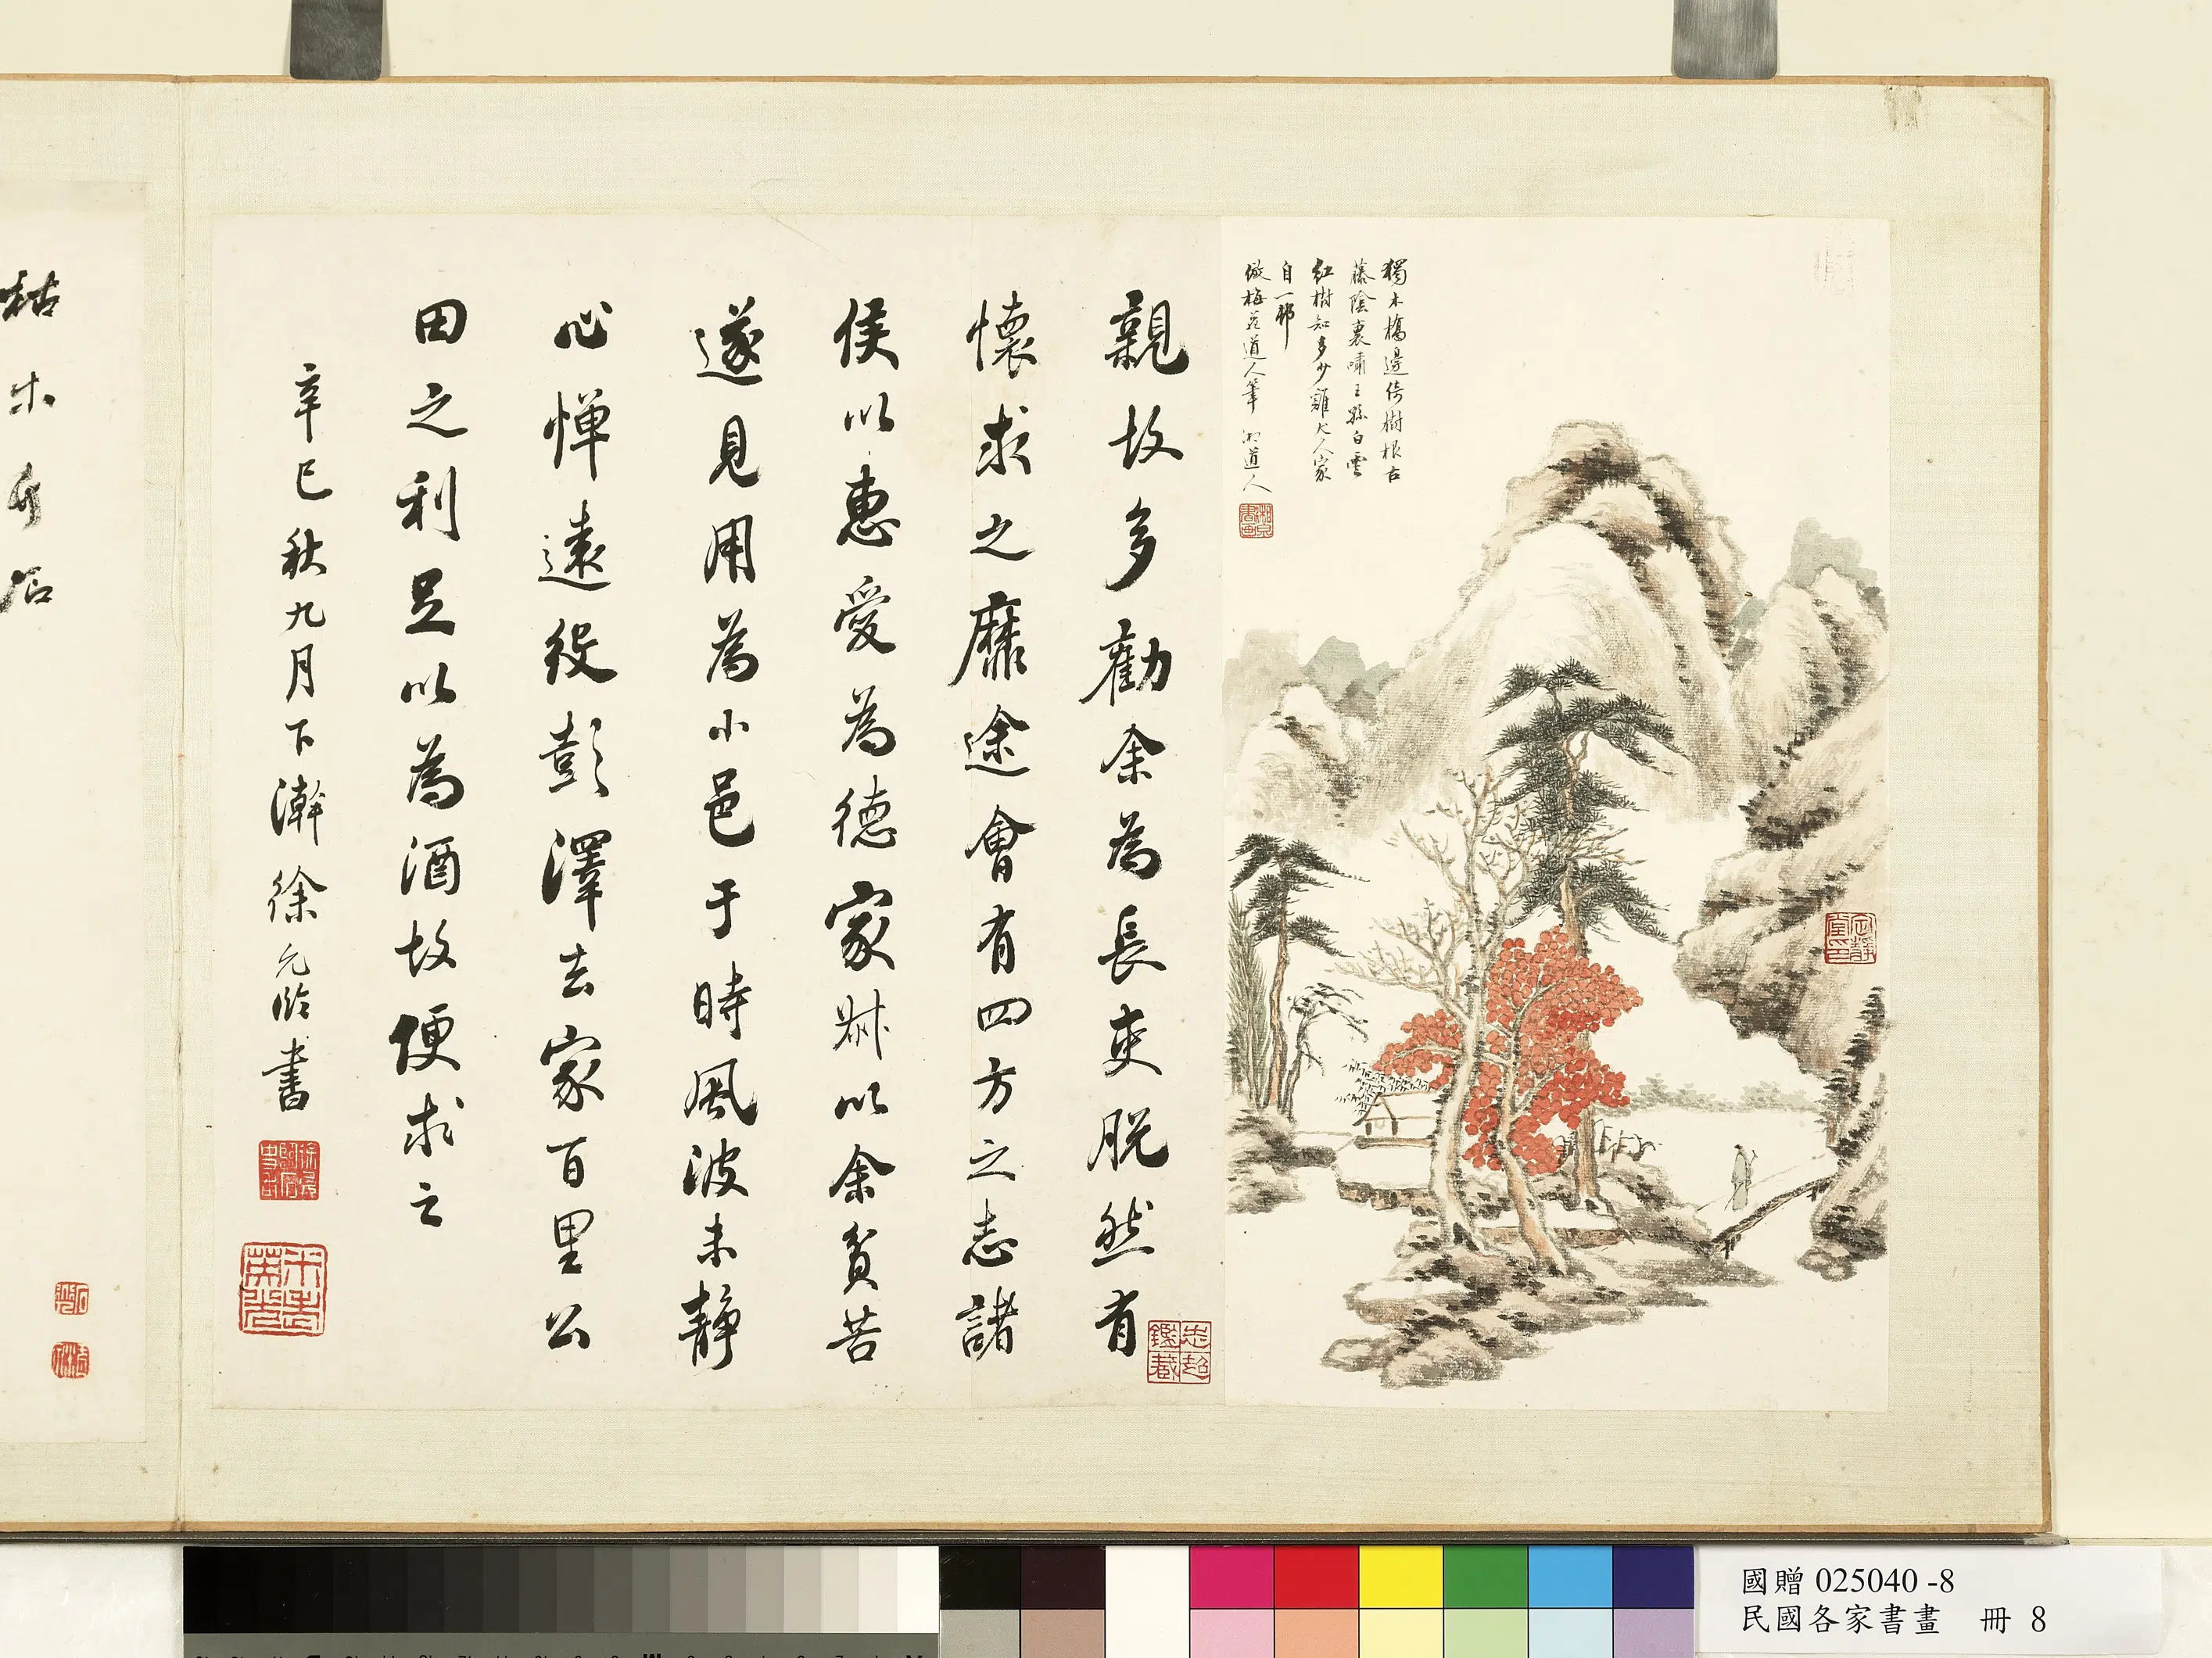 獨木橋邊倚樹根古
藤陰裏嘯王孫白雲
紅樹知多少雞犬人家
自一邨
倣梅花道人筆 湘道人
親故多勸余為長吏脱然有
懷求之靡途會有四方之志諸
侯以惠愛為德家叔以余貧苦
遂見用為小邑于時風波未静
心憚遠役彭澤去家百里公
田之利足以為酒故便求之
辛巳秋九月下澣徐元 書
枯木竹石
國贈 025040 -8
民國各家書畫 冊 8